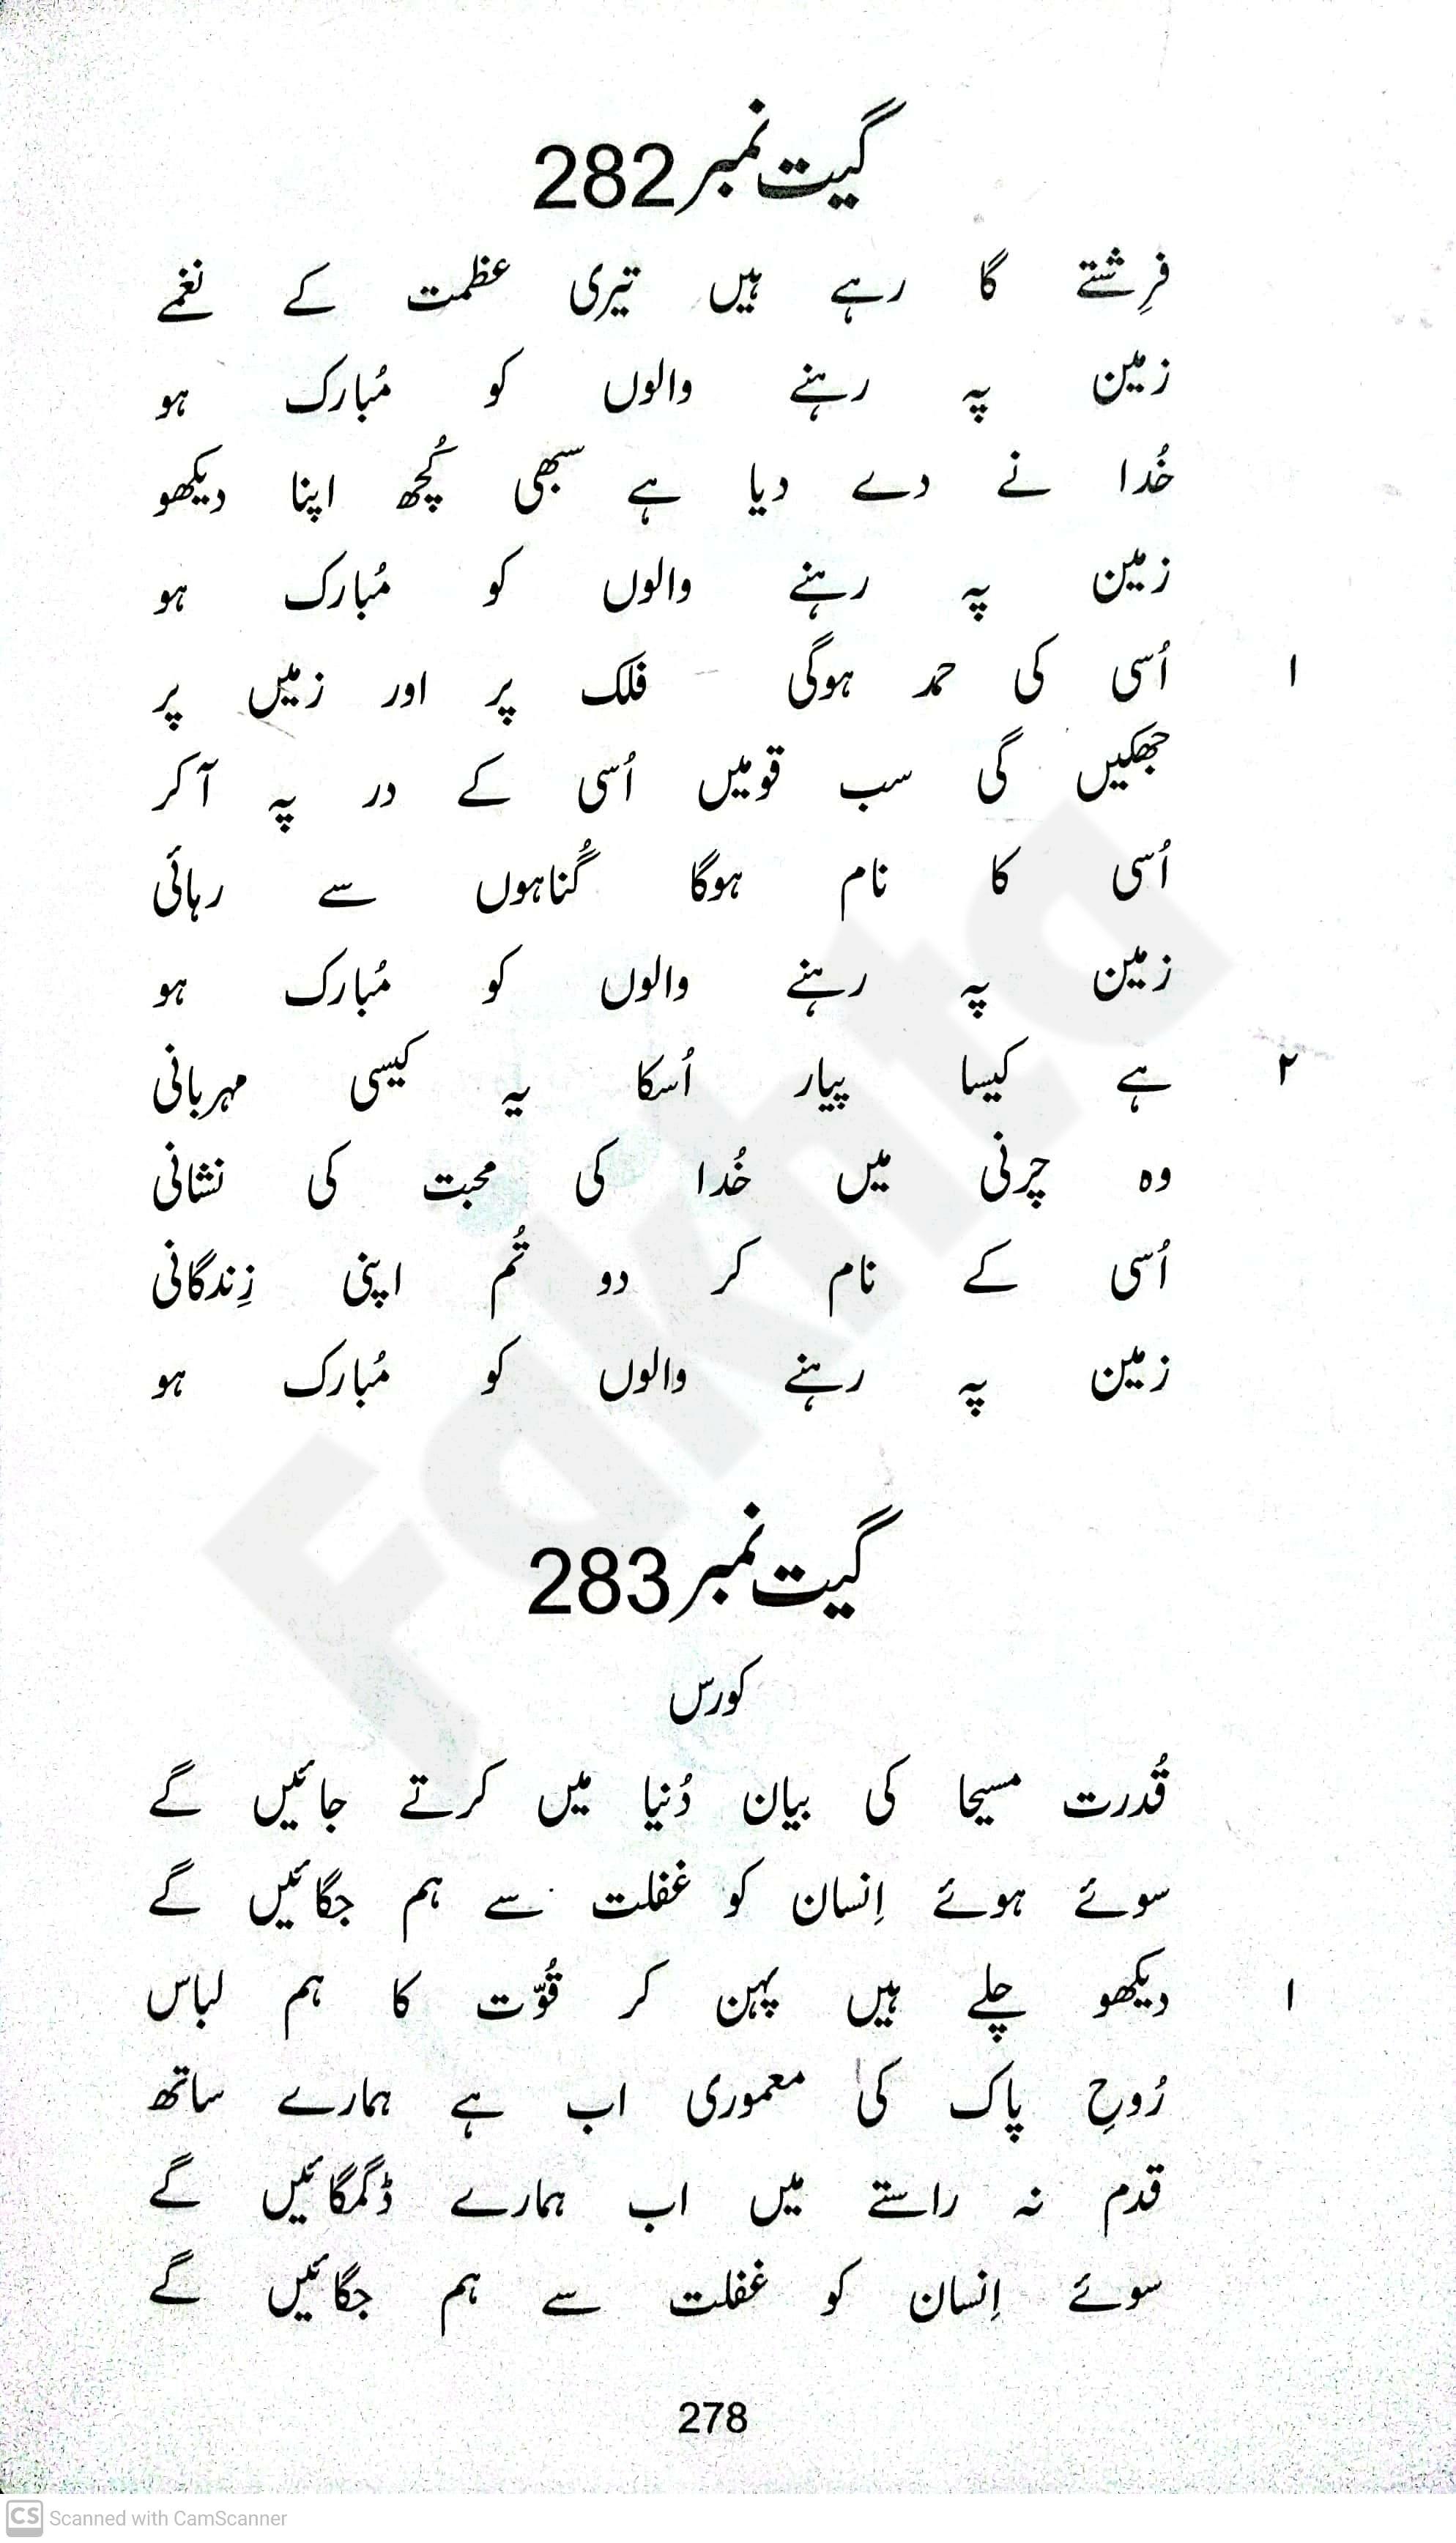 گیت نمبر 282
فرِشتے گا رہے ہیں تیری عظمت کے نغمے
زمین پہ رہنے والوں کو مُبارک ہو
خُدا نے دے دیا ہے سبھی کُچھ اپنا دیکھو
زمین پہ رہنے والوں کو مُبارک ہو
۱ اُسی کی حمد ہوگی فلک پر اور زمیں پر
جھکیں گی سب قومیں اُسی کے در پہ آ کر
اُسی کا نام ہوگا گُناہوں سے رہائی
زمین پہ رہنے والوں کو مُبارک ہو
۲ ہے کیسا پیار اُسکا یہ کیسی مہربانی
وہ چرنی میں خُدا کی محبت کی نشانی
اُسی کے نام کر دو تُم اپنی زِندگانی
زمین پہ رہنے والوں کو مُبارک ہو
گیت نمبر 283
کورس
قُدرت مسیحا کی بیان دُنیا میں کرتے جائیں گے
سوئے ہوئے اِنسان کو غفلت سے ہم جگائیں گے
۱ دیکھو چلے ہیں پہن کر قُوّت کا ہم لباس
رُوحِ پاک کی معموری اب ہے ہمارے ساتھ
قدم نہ راستے میں اب ہمارے ڈگمگائیں گے
سوئے اِنسان کو غفلت سے ہم جگائیں گے
278
Fakhta
CS Scanned with CamScanner